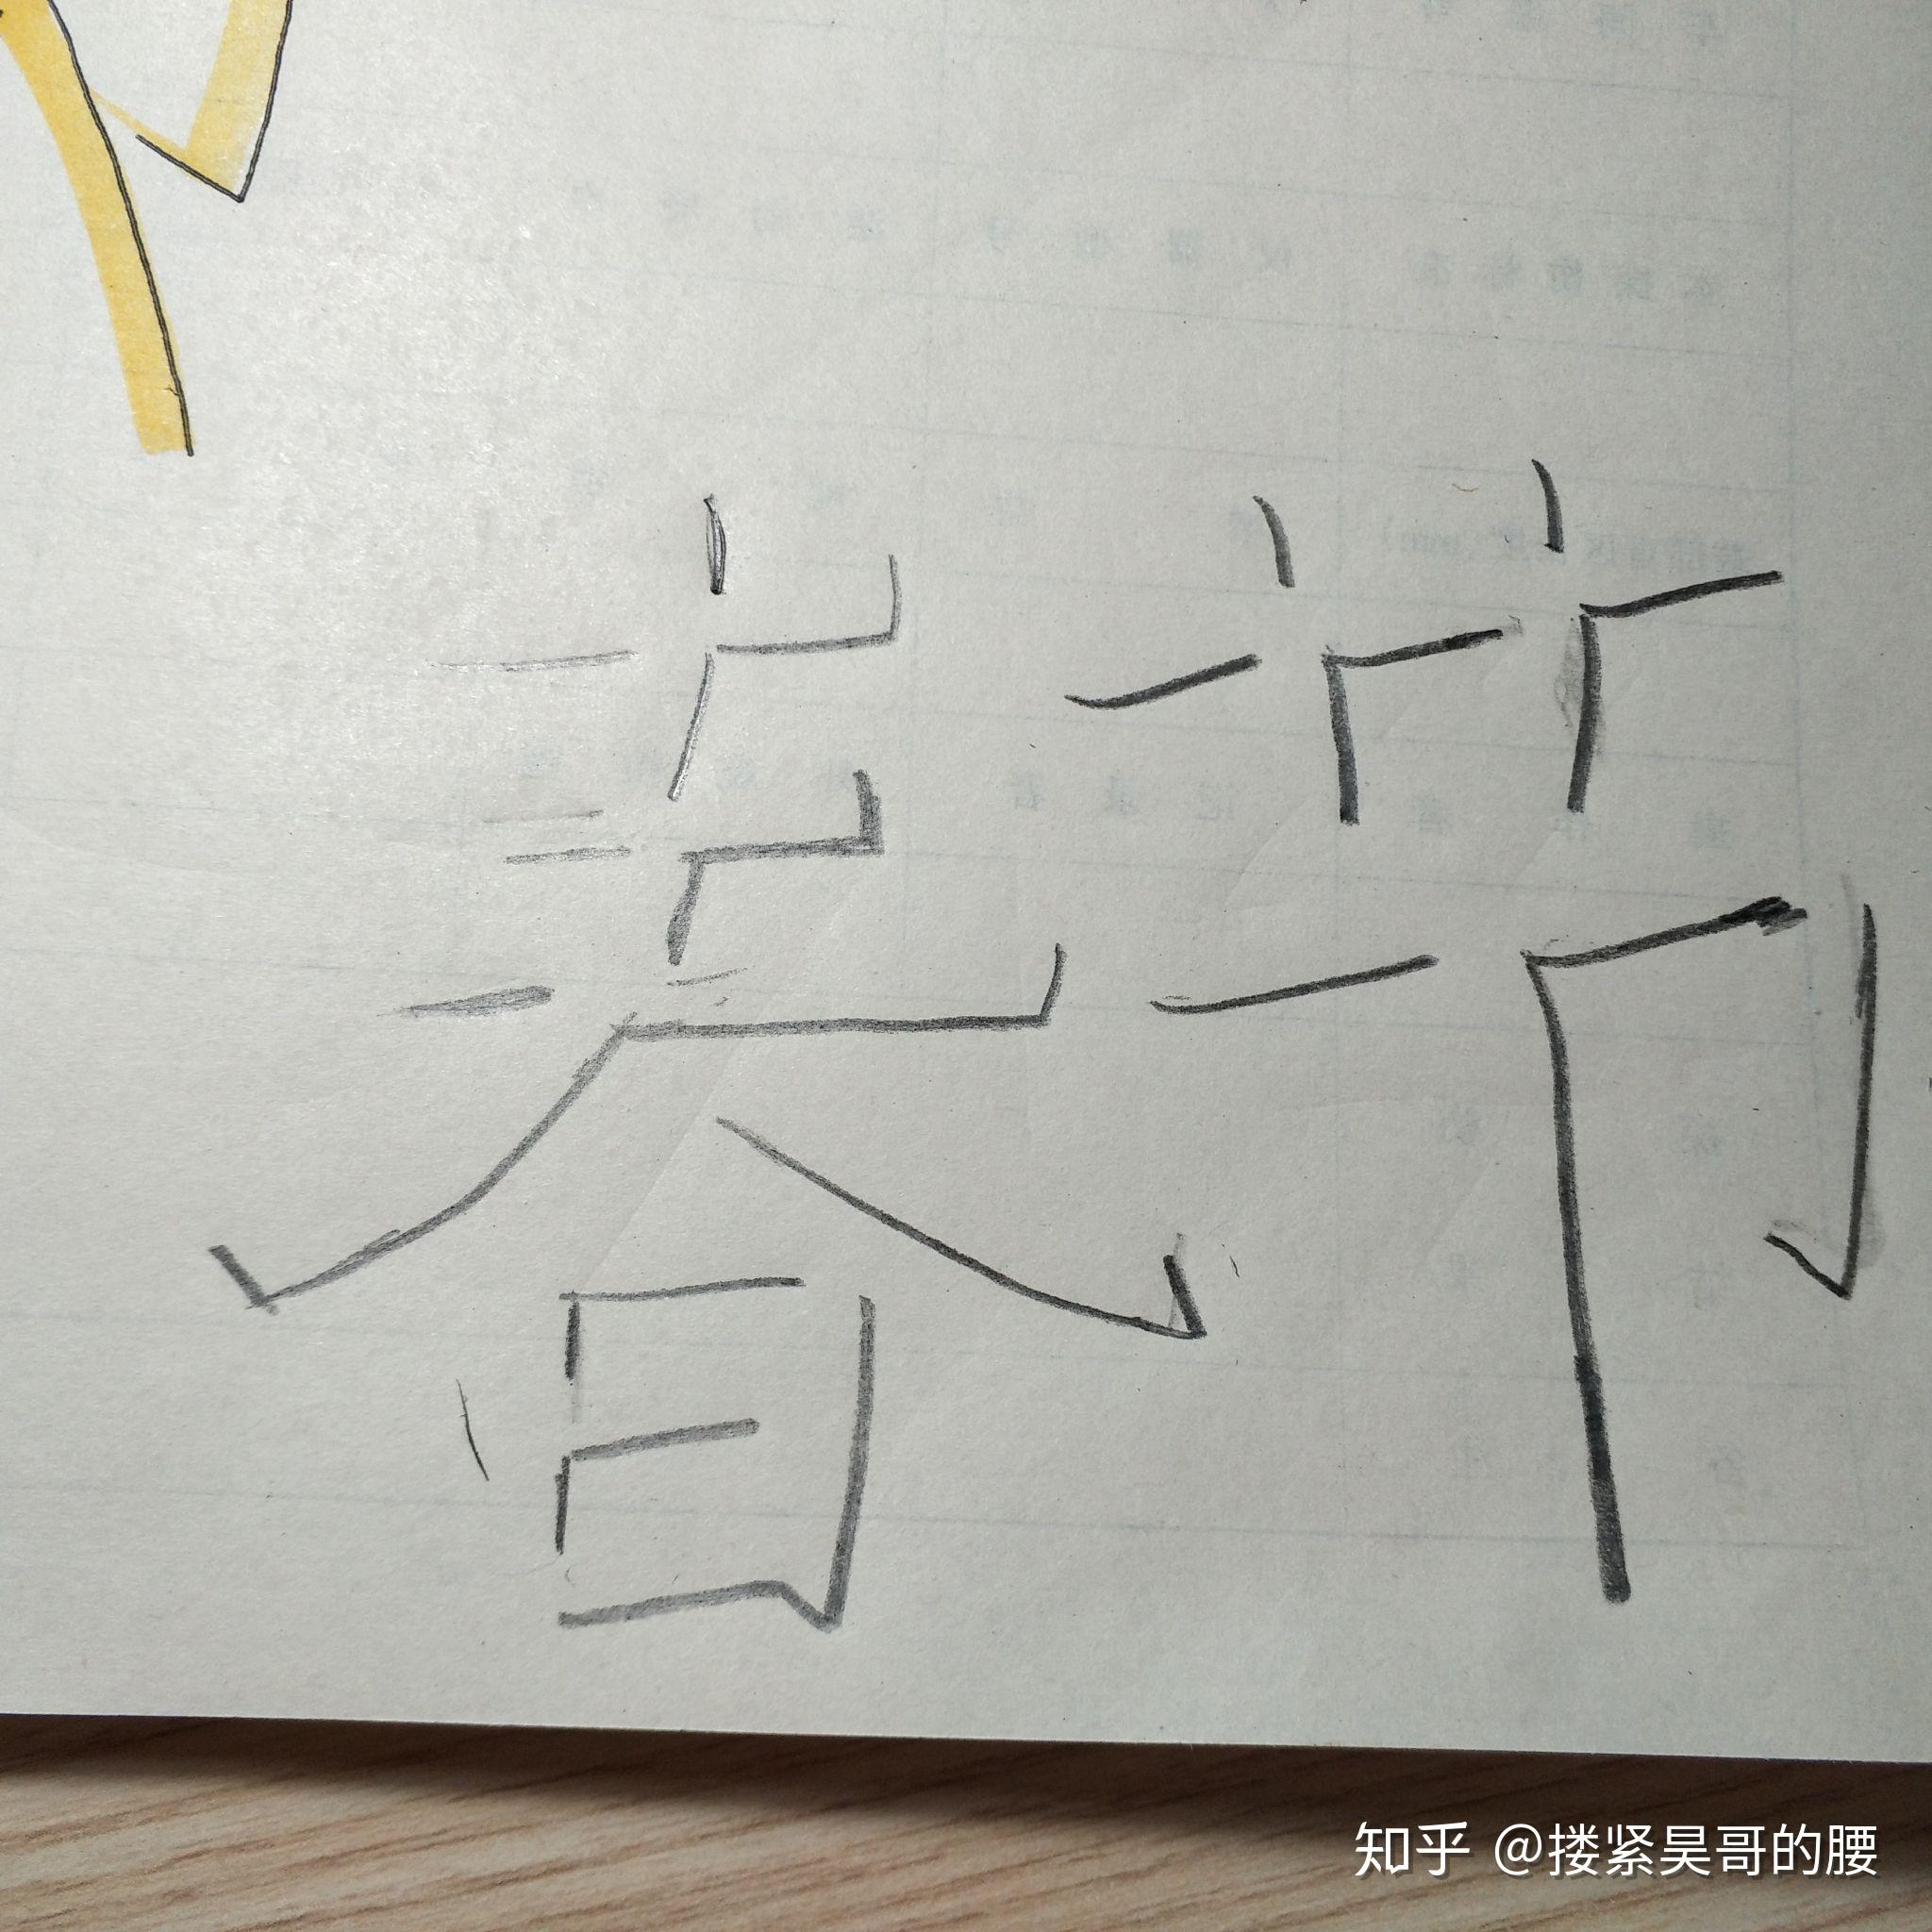 春节
知乎 @搂紧昊哥的腰